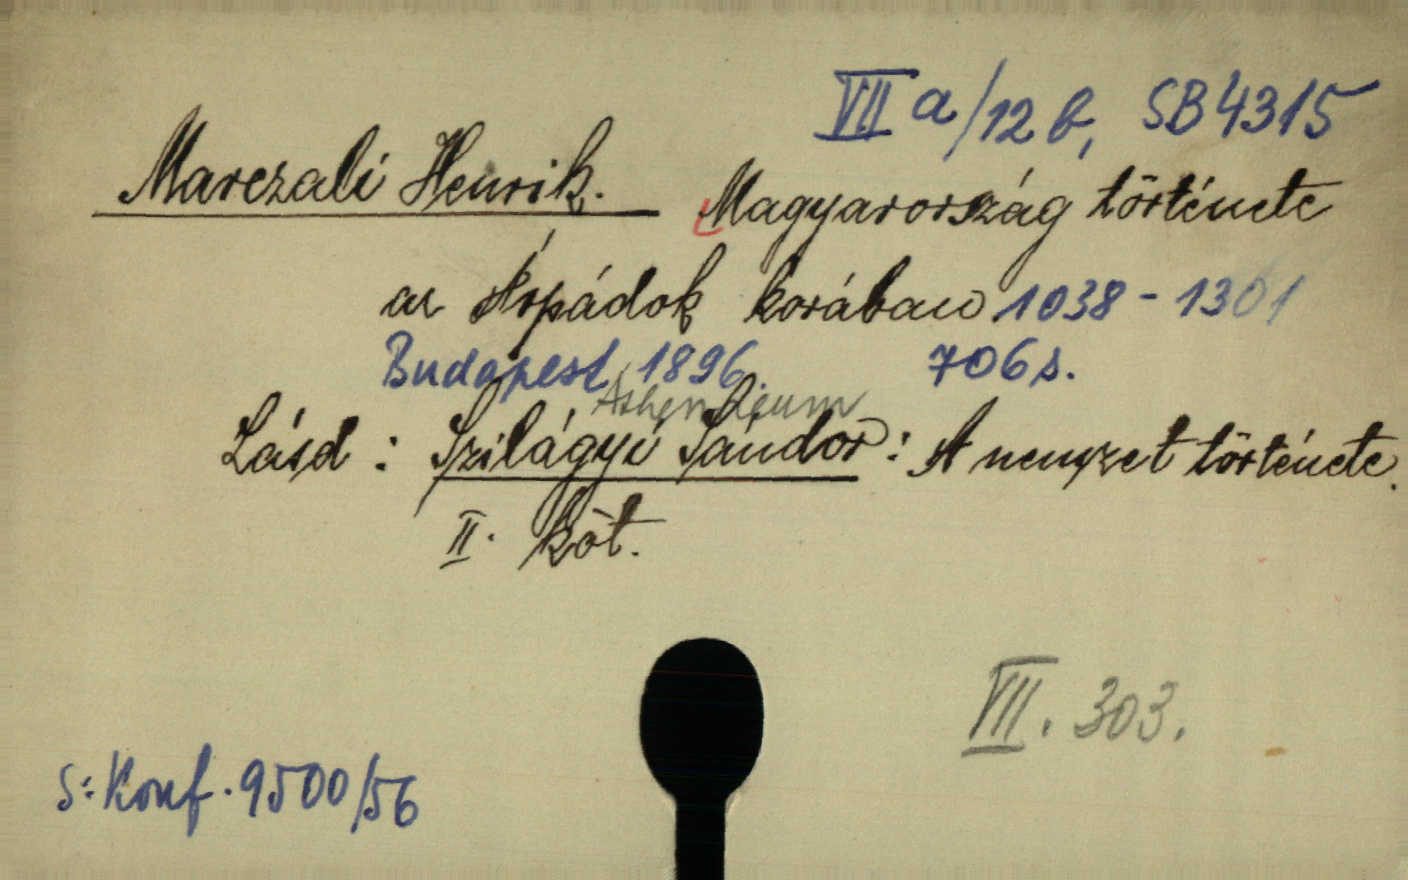 VII a/12 b, SB 4315
Marczali Henrik. Magyarország története
az Árpádok korában 1038 - 1301
Budapest, 1896. 706 s.
Athenaeum
Lásd: Szilágyi Sándor: A nemzet története.
II. köt.
VII. 303.
S: Konf. 9500/56